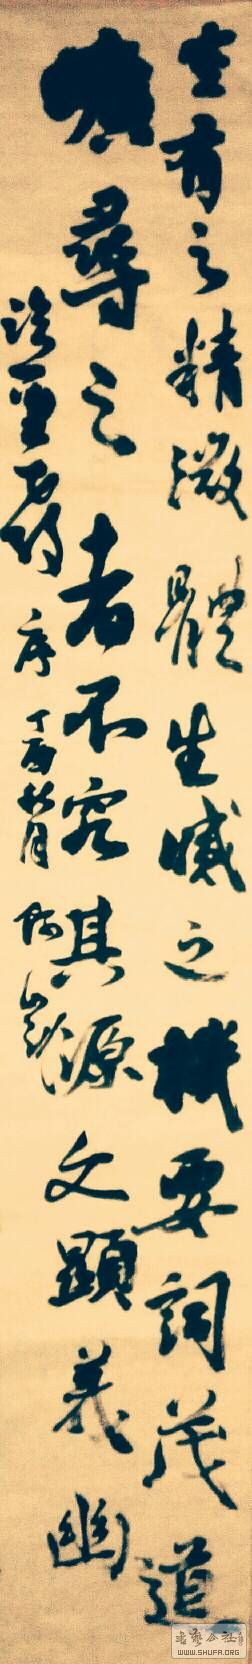 空有之精微體生滅之機要詞茂道
曠尋之者不究其源文顯義幽
臨聖教序 丁酉秋月
书艺公社
WWW.SHUFA.ORG